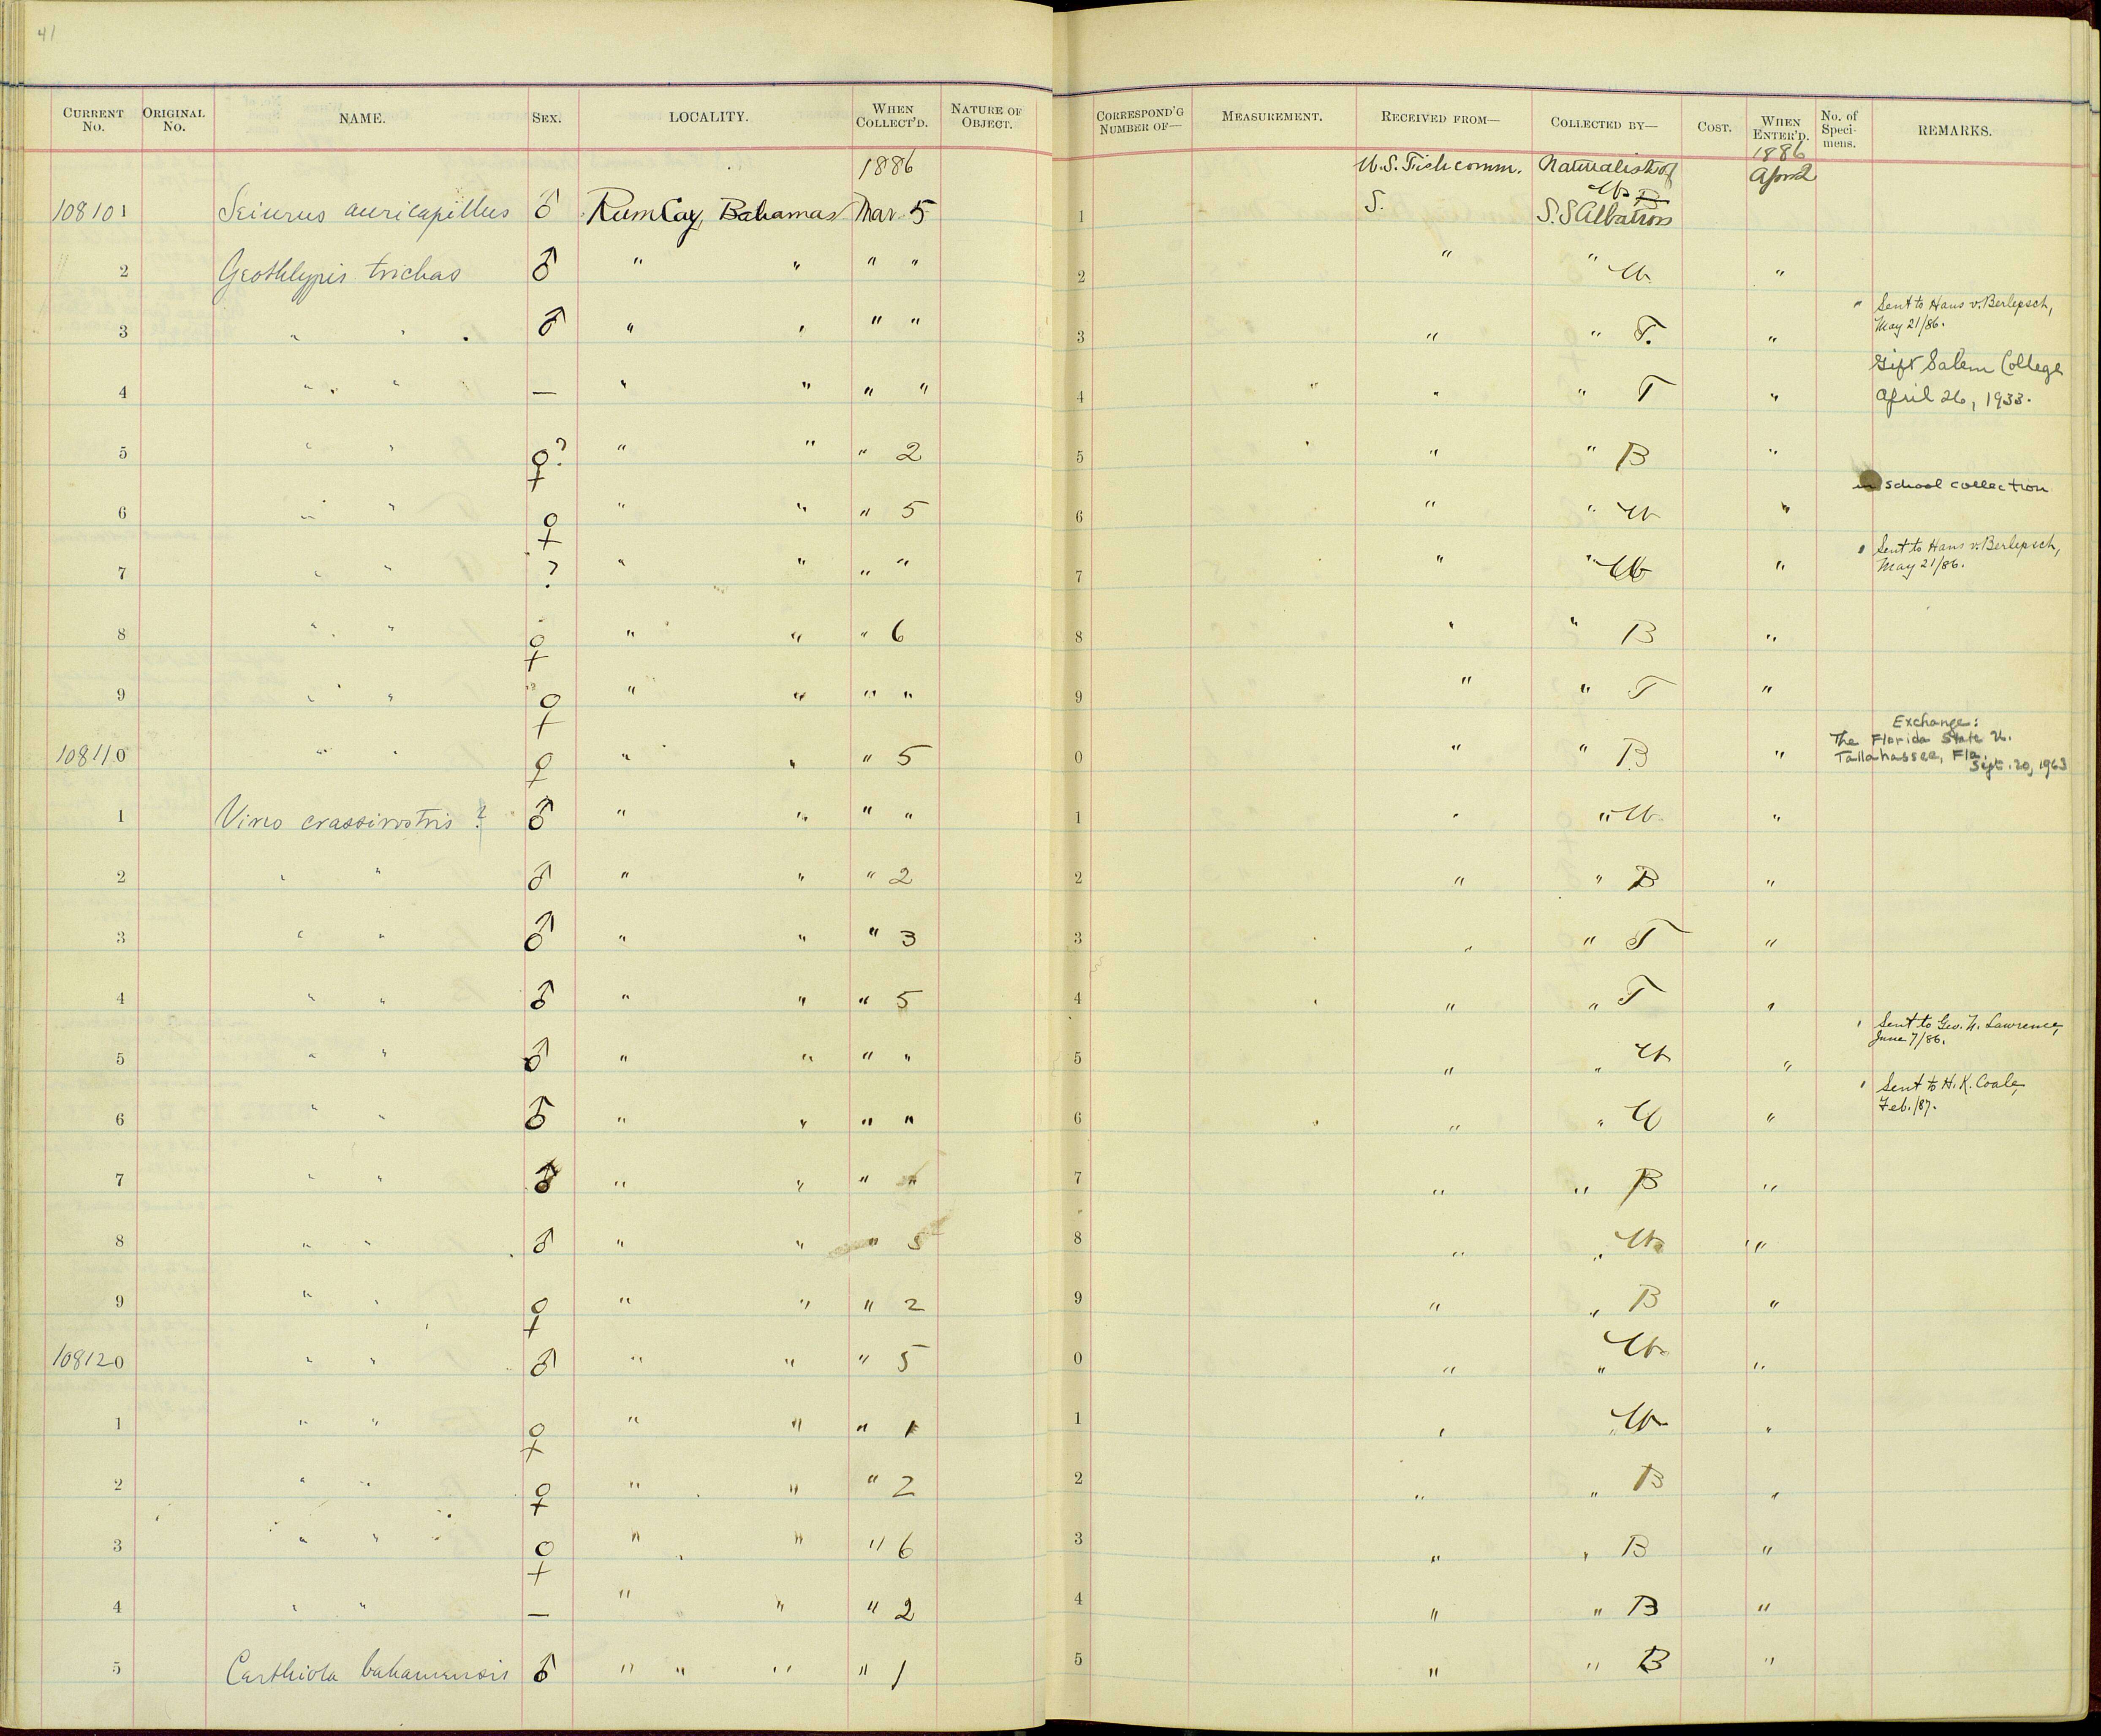 41
CURRENT No. ORIGINAL No. NAME. SEX. LOCALITY. WHEN COLLECT'D. NATURE OF OBJECT. CORRESPOND'G NUMBER OF— MEASUREMENT. RECEIVED FROM— COLLECTED BY— COST. WHEN ENTER'D. No. of Speci-mens. REMARKS.
1886 U.S. Fish comm. Naturalist of 1886 Apr 2
108101 Seiurus auricapillus ♂ Rum Cay, Bahamas Mar 5 1 S. S.S Albatross
2 Geothlypis trichas ♂ " " " " 2 " " " 
3 " " ♂ " " " " 3 " " T. " " Sent to Hans v. Berlepsch, May 21/86.
4 " " — " " " " 4 " " T " Gift Salem College April 26, 1933.
5 " " ♀? " " " 2 5 " " B "
6 " " ♀ " " " 5 6 " " " in school collection
7 " " ? " " " " 7 " " " " Sent to Hans v. Berlepsch, May 21/86.
8 " " ♀ " " " 6 8 " " B "
9 " " ♀ " " " " 9 " " T "
108110 " " ♀ " " " 5 0 " " B " Exchange: The Florida State U. Tallahassee, Fla. Sept. 20, 1963
1 Vireo crassirostris ? ♂ " " " " 1 " " "
2 " " ♂ " " " 2 2 " " B "
3 " " ♂ " " " 3 3 " " T "
4 " " ♂ " " " 5 4 " " T "
5 " " ♂ " " " " 5 " " " " Sent to Geo. N. Lawrence, June 7/86.
6 " " ♂ " " " " 6 " " " " Sent to H. K. Coale, Feb. /87.
7 " " ♂ " " " " 7 " " B "
8 " " ♂ " " " 5 8 " " "
9 " " ♀ " " " 2 9 " " B "
108120 " " ♂ " " " 5 0 " " "
1 " " ♀ " " " 1 1 " " "
2 " " ♀ " " " 2 2 " " B "
3 " " ♀ " " " 6 3 " " B "
4 " " — " " " 2 4 " " B "
5 Certhiola bahamensis ♂ " " " " 1 5 " " B "